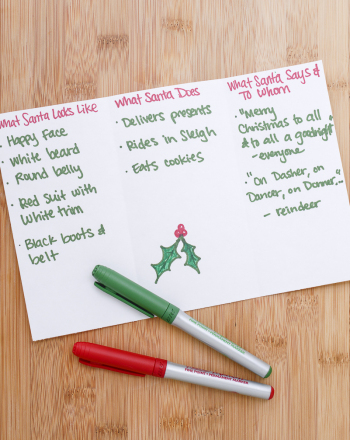 What Santa Looks Like
• Happy Face
• White beard
• Round belly
• Red suit with
White trim
• Black boots &
belt
What Santa Does
• Delivers presents
• Rides in Sleigh
• Eats cookies
What Santa Says &
To Whom
• "Merry
Christmas to all
& to all a goodnight"
- everyone
• "On Dasher, on
Dancer, on Donner,"-
- reindeer